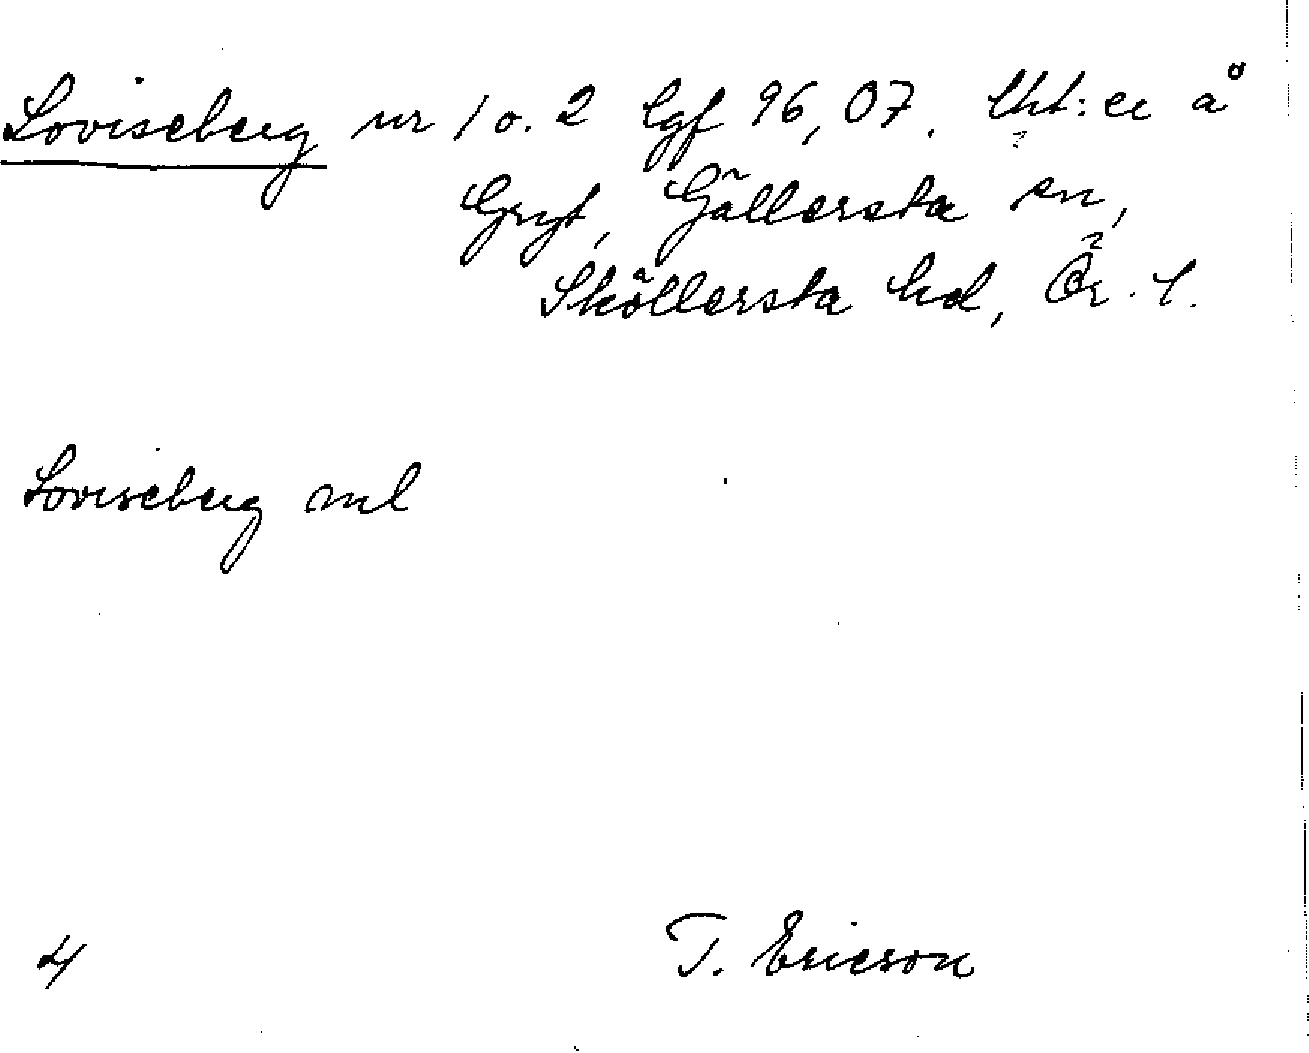 Loviseberg nr 1 o. 2 lgf 96, 07. Uht:er å
Gryt, Gällersta sn,
Sköllersta hd, Ör. l.
Loviseberg ml
4
T. Ericson